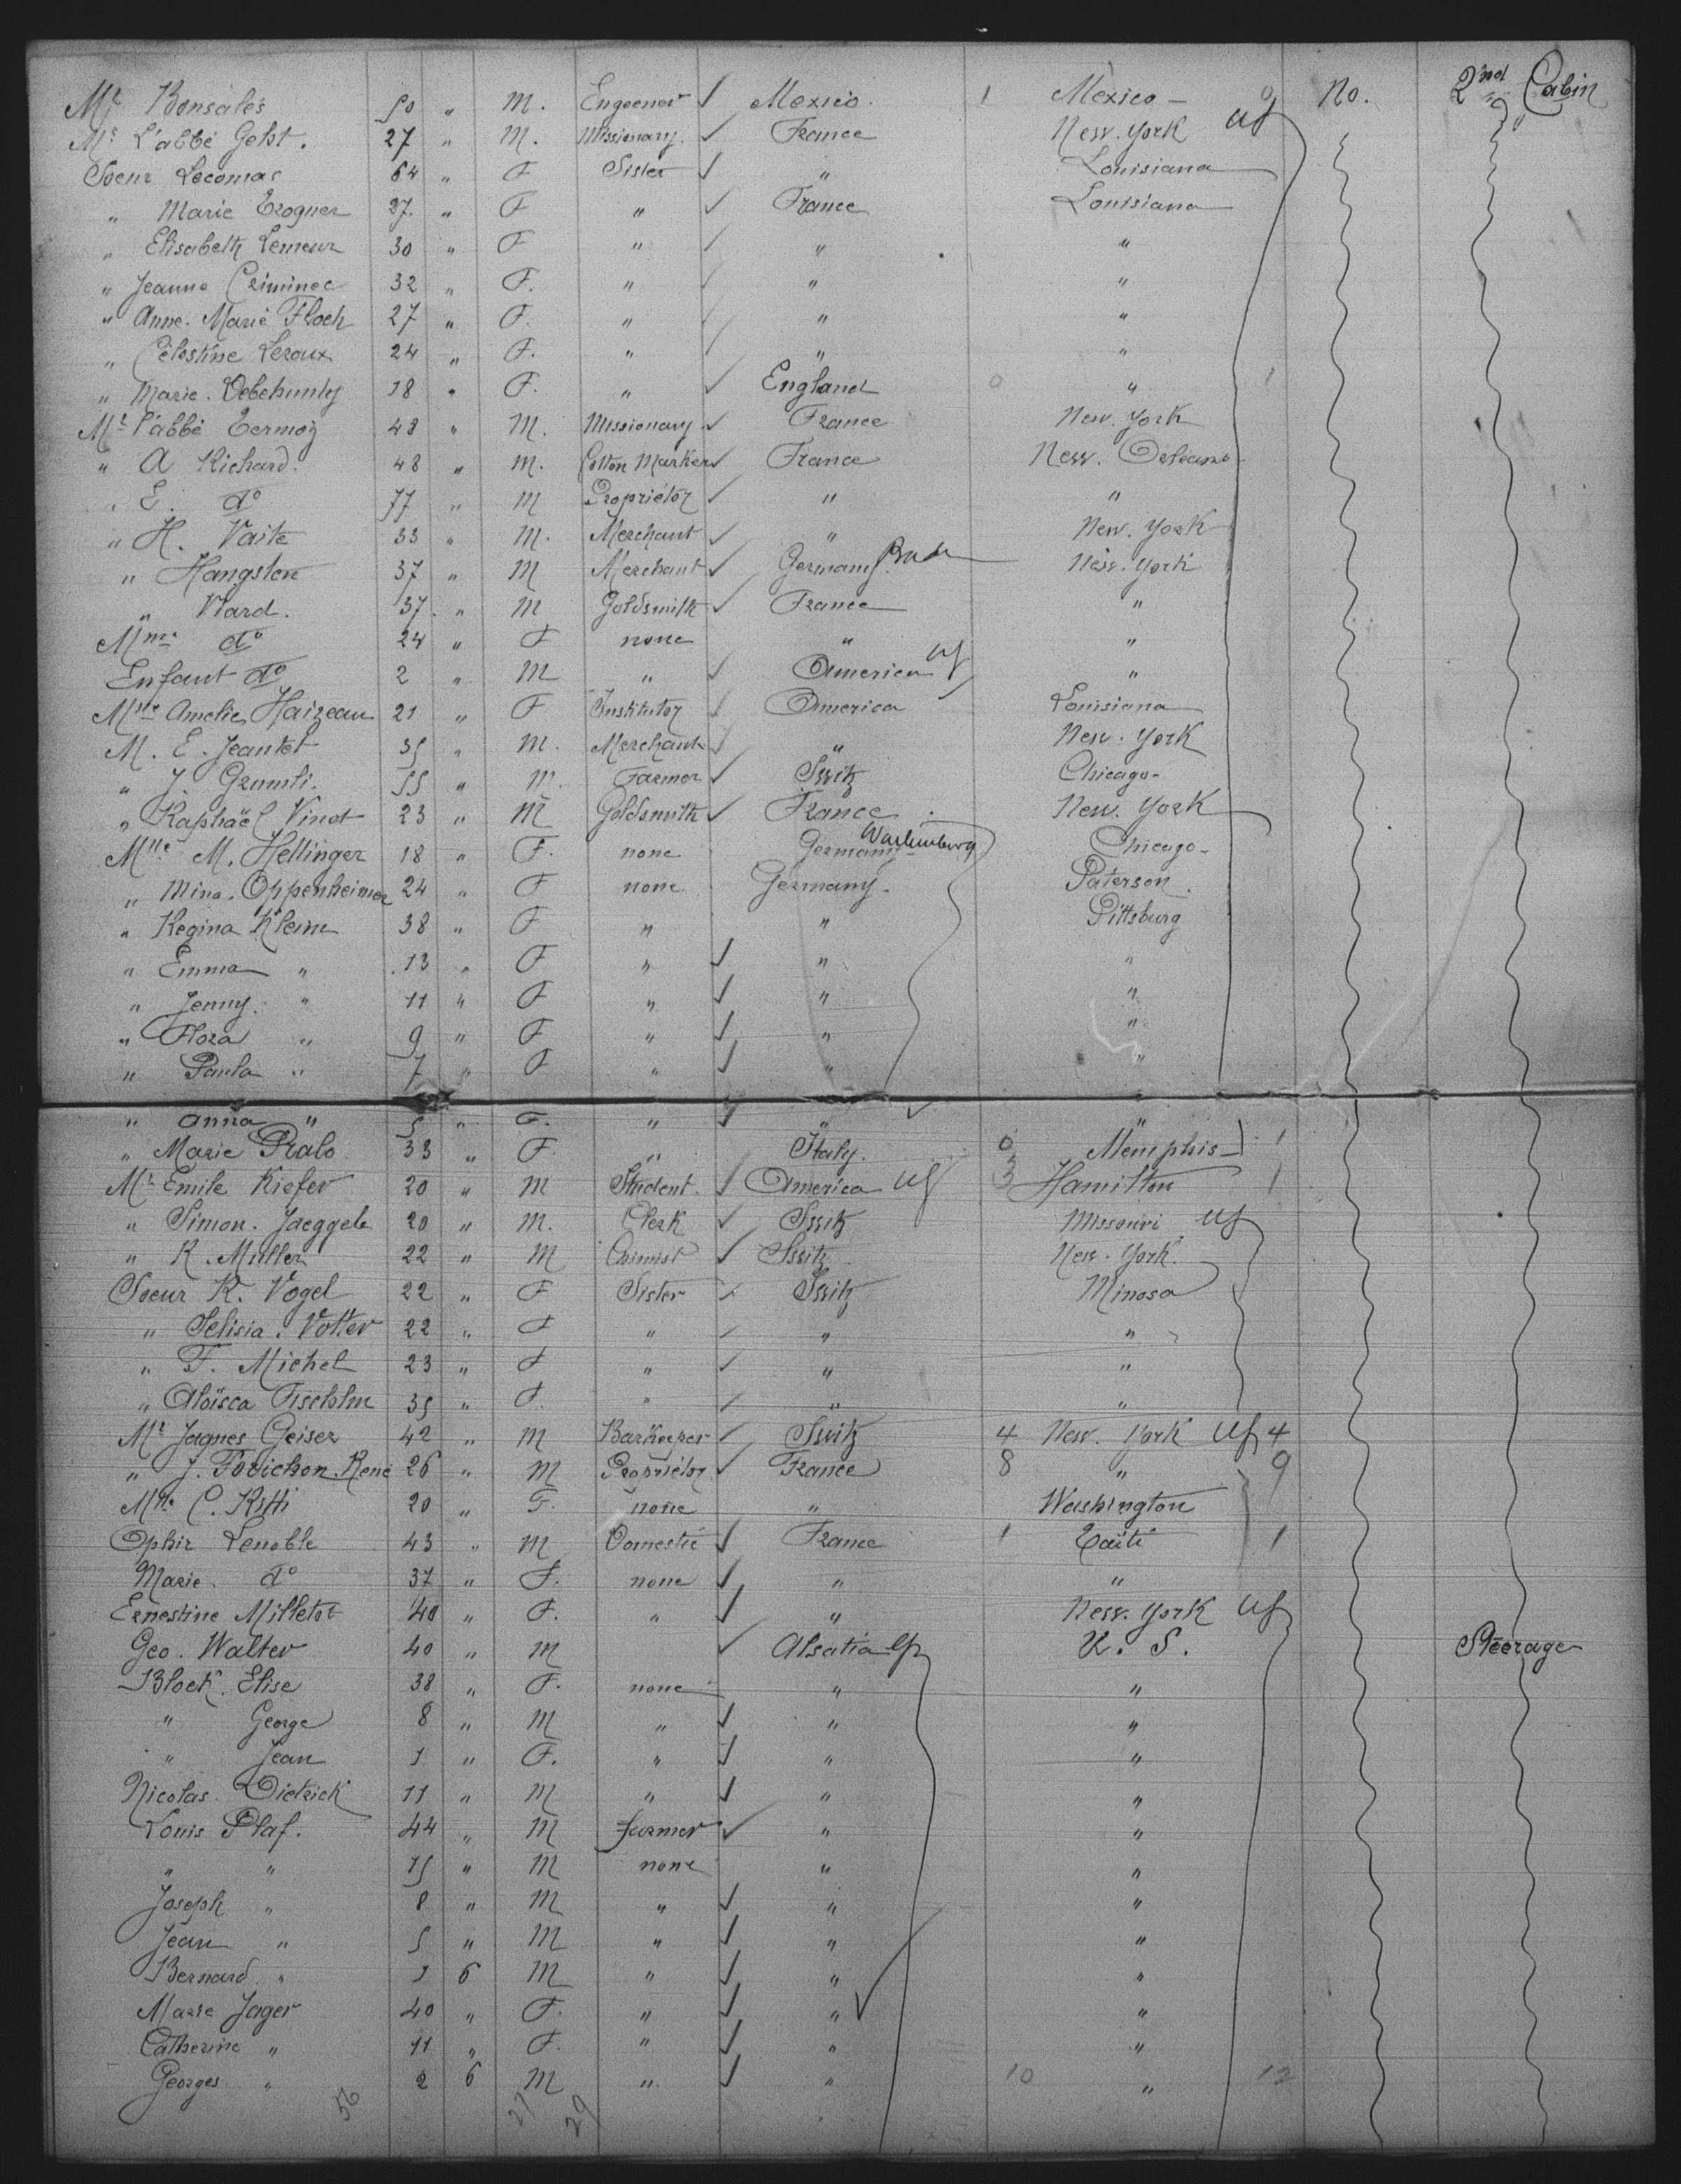 Mr Bonsalès 50 " M. Engeenor ✓ Mexico. 1 Mexico — 0 No. 2nd Cabin
Mr L'abbé Gelst. 27 " M. Missionary. ✓ France New. York US
Soeur Lecomas 64 " F Sister ✓ " Louisiana
" Marie Trogner 27. " F " ✓ France Louisiana
" Elisabeth Lemeur 30 " F " ✓ " "
" Jeanne Criminec 32 " F. " ✓ " "
" Anne. Marie Floch 27 " F. " ✓ " "
" Célestine Leroux 24 " F. " ✓ " "
" Marie. 18 " F. " ✓ England 0 " 1
Mr l'abbé Termoz 48 " M. Missionary ✓ France New. York
" A Richard. 48 " M. Cotton Marker ✓ France New. Orleans
" E. do 77 " M Propriétor ✓ " "
" H. Vaite 33 " M. Merchant ✓ " New. York
" Hangsten 37 " M Merchant ✓ Germany New. York
" Viard. 37. " M Goldsmith ✓ France "
Mme do 24 " F none " "
Enfant do 2 " M " ✓ America US "
Mme Amelie Haizeau 21 " F Institutor ✓ America Louisiana
M. E. Jeantet 35 " M. Merchant ✓ " New. York
" J. Grumli. 55 " M. Farmer ✓ Switz Chicago-
" Raphaël Vinot 23 " M Goldsmith ✓ France New. York
Mlle M. Hellinger 18 " F. none Germany Chicago-
" Mina. Oppenheimer 24 " F none Germany. Paterson.
" Regina Klein 38 " F " " Pittsburg
" Emma " 13 " F " ✓ " "
" Jenny. " 11 " F " ✓ " "
" Flora " 9 " F " ✓ " "
" Paula " 7 " F " ✓ " "
" Anna " 5 " F. " ✓ " "
" Marie Pralo 33 " F. " Italy. 0 Memphis 1
Mr Emile Kiefer 20 " M Student. ✓ America US 3 Hamilton 1
" Simon. Jaeggele 20 " M. Clerk ✓ Switz Missouri US
" R. Muller 22 " M Chimist ✓ Switz New. York.
Soeur K. Vogel 22 " F Sister ✓ Switz Minosa
" Felisia. Votter 22 " F " ✓ " "
" F. Michel 23 " F " ✓ " "
" Aloïsca 35 " F. " ✓ " "
Mr Jagnes Geiser 42 " M Barkeeper ✓ Switz 4 New. York US 4
" J. Forichon. René 26 " M Propriétor ✓ France 8 " 9
Mlle C. 20 " F. none " Washington
Ophir Lenoble 43 " M Domestic ✓ France 1 Taïti 1
Marie. do 37 " F. none ✓ " "
Ernestine Milletot 40 " F. " ✓ " New. York US
Geo. Walter 40 " M ✓ Alsatia U. S. Steerage
Block. Elise 38 " F. none " "
" George 8 " M " ✓ " "
" Jean 1 " F. " ✓ " "
Nicolas. Dietrick 11 " M " ✓ " "
Louis Plaf. 44 " M farmer ✓ " "
" " 15 " M none " "
Joseph " 8 " M " ✓ " "
Jean " 5 " M " ✓ " "
Bernard " 1 6 M " ✓ " "
Marie Jager 40 " F. " ✓ " "
Catherine " 11 " F. " ✓ " "
Georges " 2 6 M " ✓ " 10 " 12
56 27 29